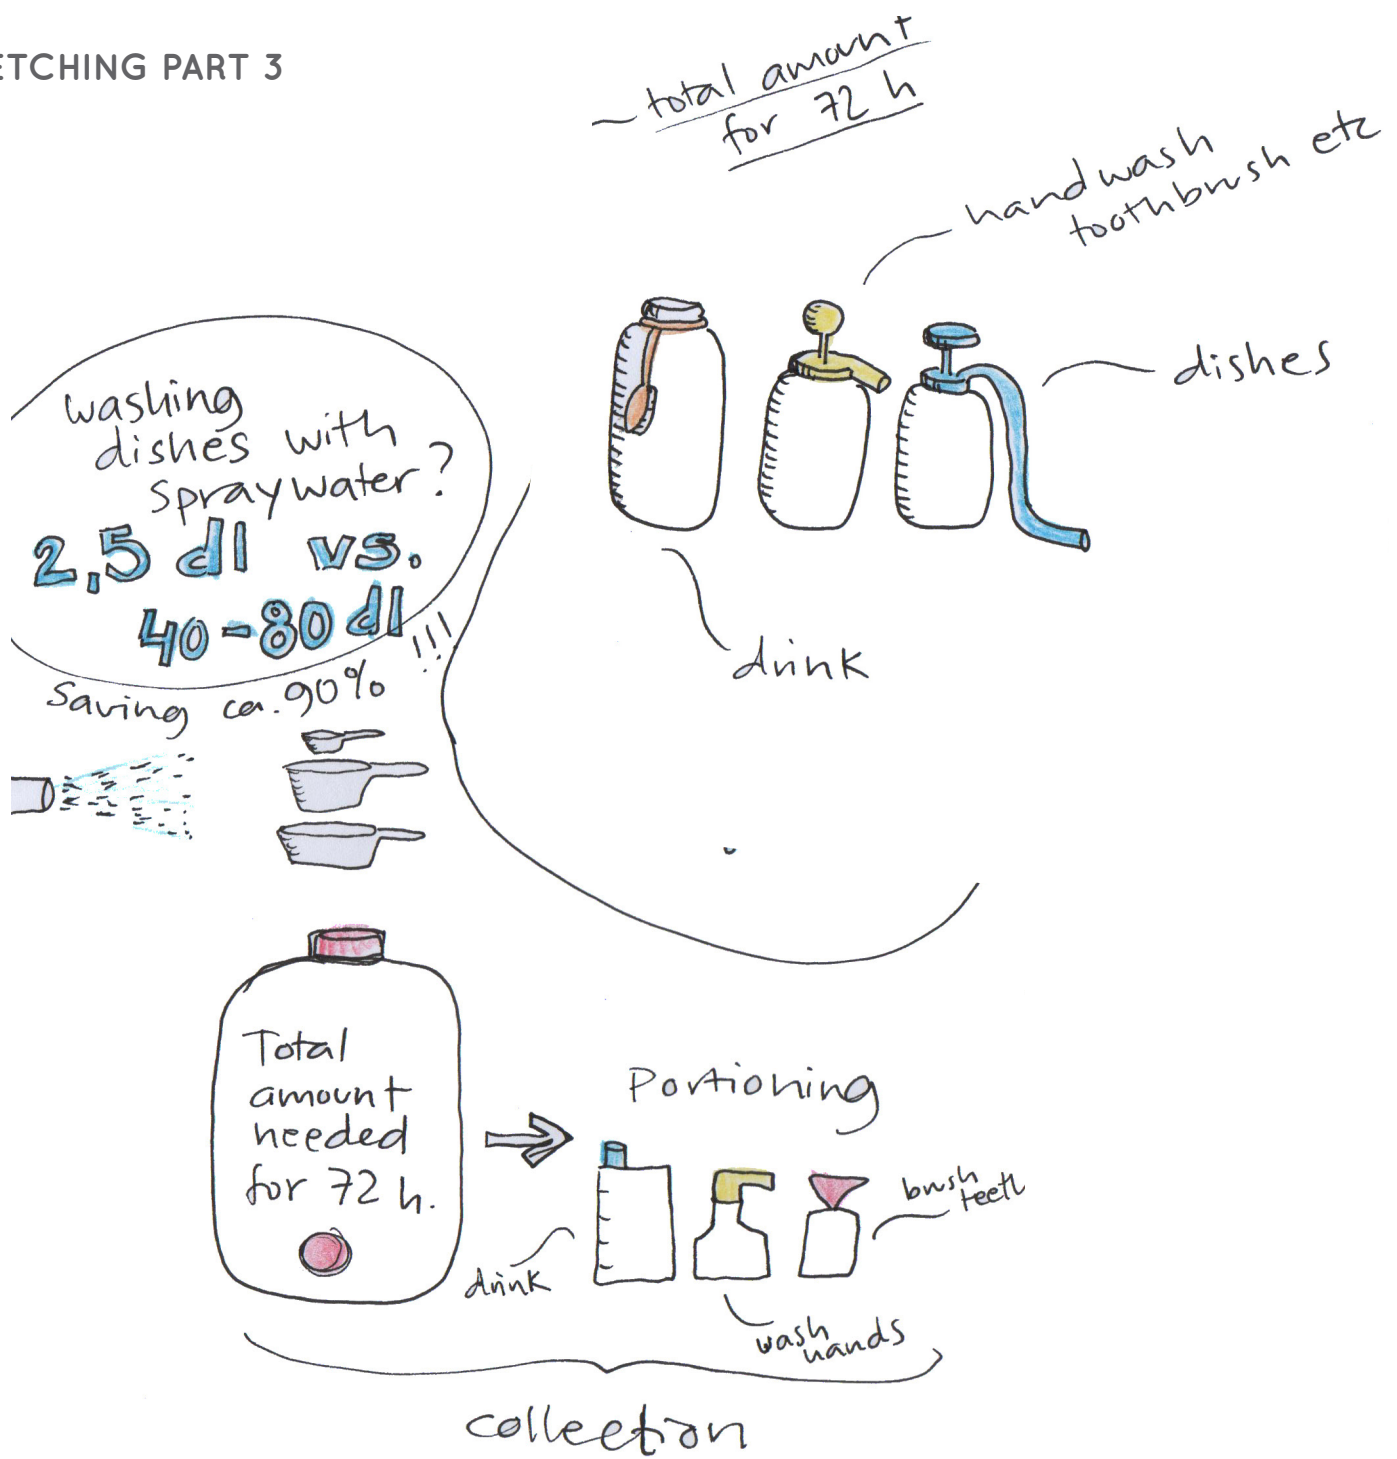 ETCHING PART 3
total amount
for 72 h
handwash
toothbrush etc
dishes
drink
washing
dishes with
spraywater?
2,5 dl vs.
40-80 dl
!!!
Saving ca. 90%
Total
amount
needed
for 72 h.
Portioning
drink
wash
hands
brush
teeth
collection